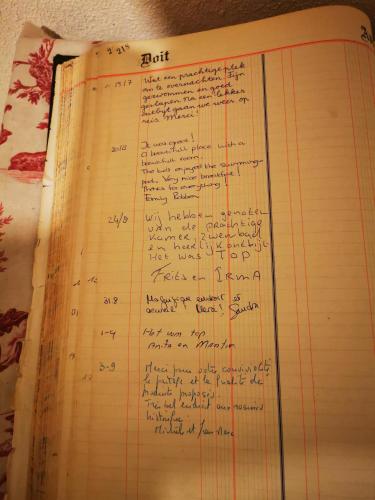 2 218
Doit
19/7 Wat een prachtige plek
om te overnachten. Fijn
gezwommen en goed
geslapen. Na een lekker
ontbijt gaan we weer op
reis. Merci!
20/8 It was great!
A beautifull place with a
beautifull room.
The kids enjoyed the swimming-
pool. Very nice breakfast!
Thanks for everything!
Family
24/8 Wij hebben genoten
van de prachtige
kamer, zwembad
en heerlijk ontbijt.
Het was TOP
Frits en IRMA
31.8 Magnifique endroit et
accueil! Merci! Sandra
1-9 Het was top
Anita en Martin
3-9 Merci pour votre convivialité,
le partage et la qualité de
produits proposés.
Très bel endroit aux
historique
Michel et